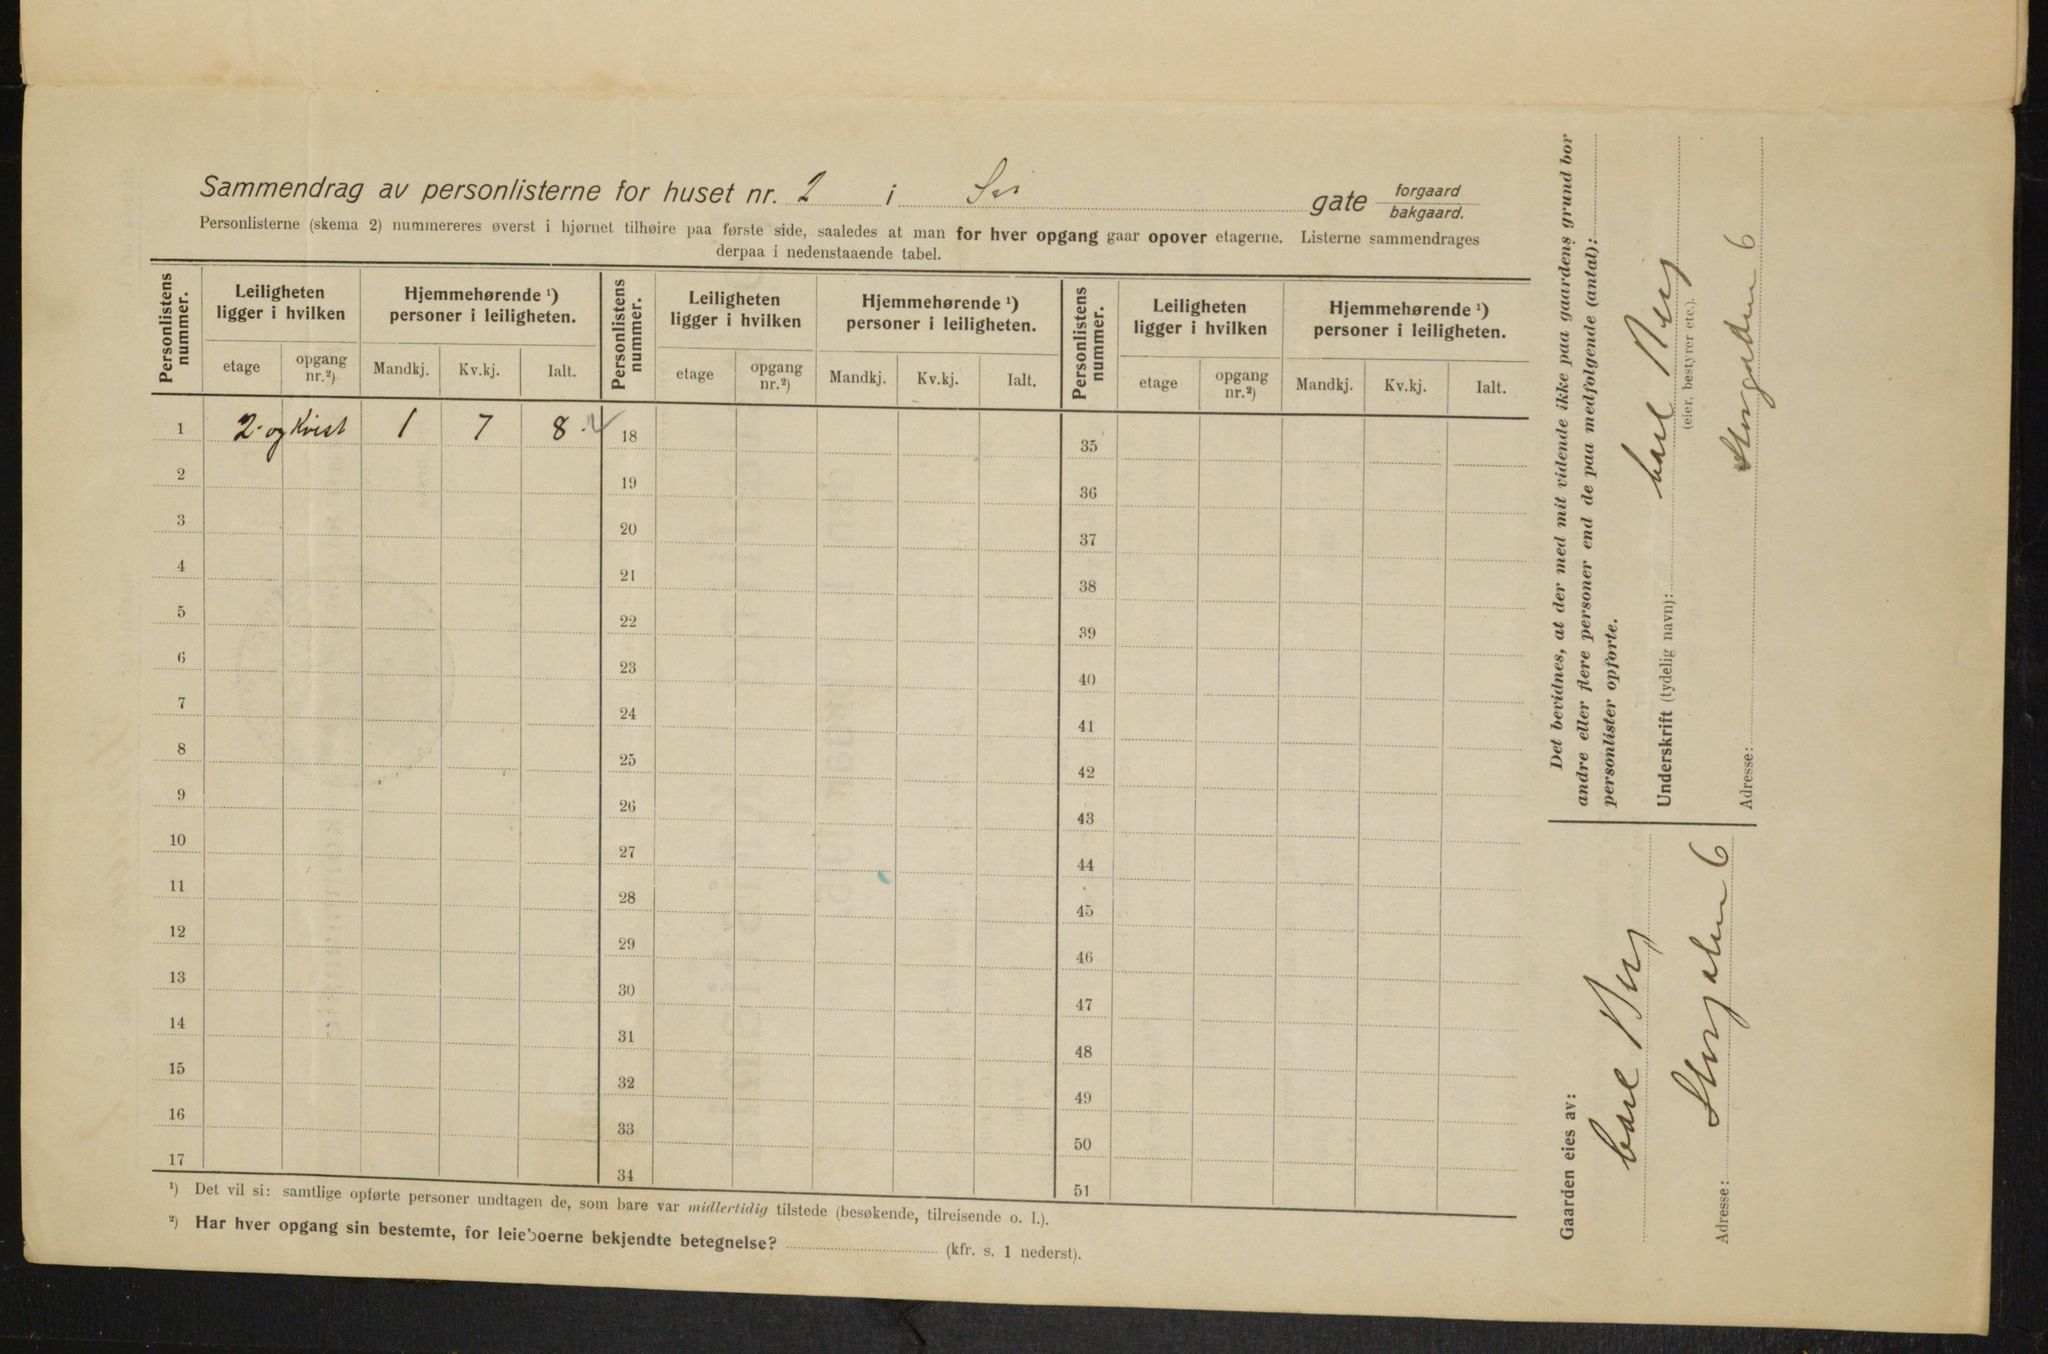 Sammendrag av personlisterne for huset nr. 2 i gate forgaard bakgaard.
Personlisterne (skema 2) nummereres øverst i hjørnet tilhøire paa første side, saaledes at man for hver opgang gaar opover etagerne. Listerne sammendrages
derpaa i nedenstaaende tabel.
Personlistens nummer. Leiligheten ligger i hvilken Hjemmehørende ¹) personer i leiligheten. Personlistens nummer. Leiligheten ligger i hvilken Hjemmehørende ¹) personer i leiligheten. Personlistens nummer. Leiligheten ligger i hvilken Hjemmehørende ¹) personer i leiligheten.
etage opgang nr.²) Mandkj. Kv.kj. Ialt. etage opgang nr.²) Mandkj. Kv.kj. Ialt. etage opgang nr.²) Mandkj. Kv.kj. Ialt.
1 2. og Kvist 1 7 8 18 35
2 19 36
3 20 37
4 21 38
5 22 39
6 23 40
7 24 41
8 25 42
9 26 43
10 27 44
11 28 45
12 29 46
13 30 47
14 31 48
15 32 49
16 33 50
17 34 51
¹) Det vil si: samtlige opførte personer undtagen de, som bare var midlertidig tilstede (besøkende, tilreisende o. l.).
²) Har hver opgang sin bestemte, for leieboerne bekjendte betegnelse? (kfr. s. 1 nederst).
Det bevidnes, at der med mit vidende ikke paa gaardens grund bor
andre eller flere personer end de paa medfølgende (antal):
personlister opførte.
Underskrift (tydelig navn): Carl Berg
(eier, bestyrer etc.).
Adresse: Storgaten 6
Gaarden eies av:
Carl Berg
Adresse: Storgaten 6